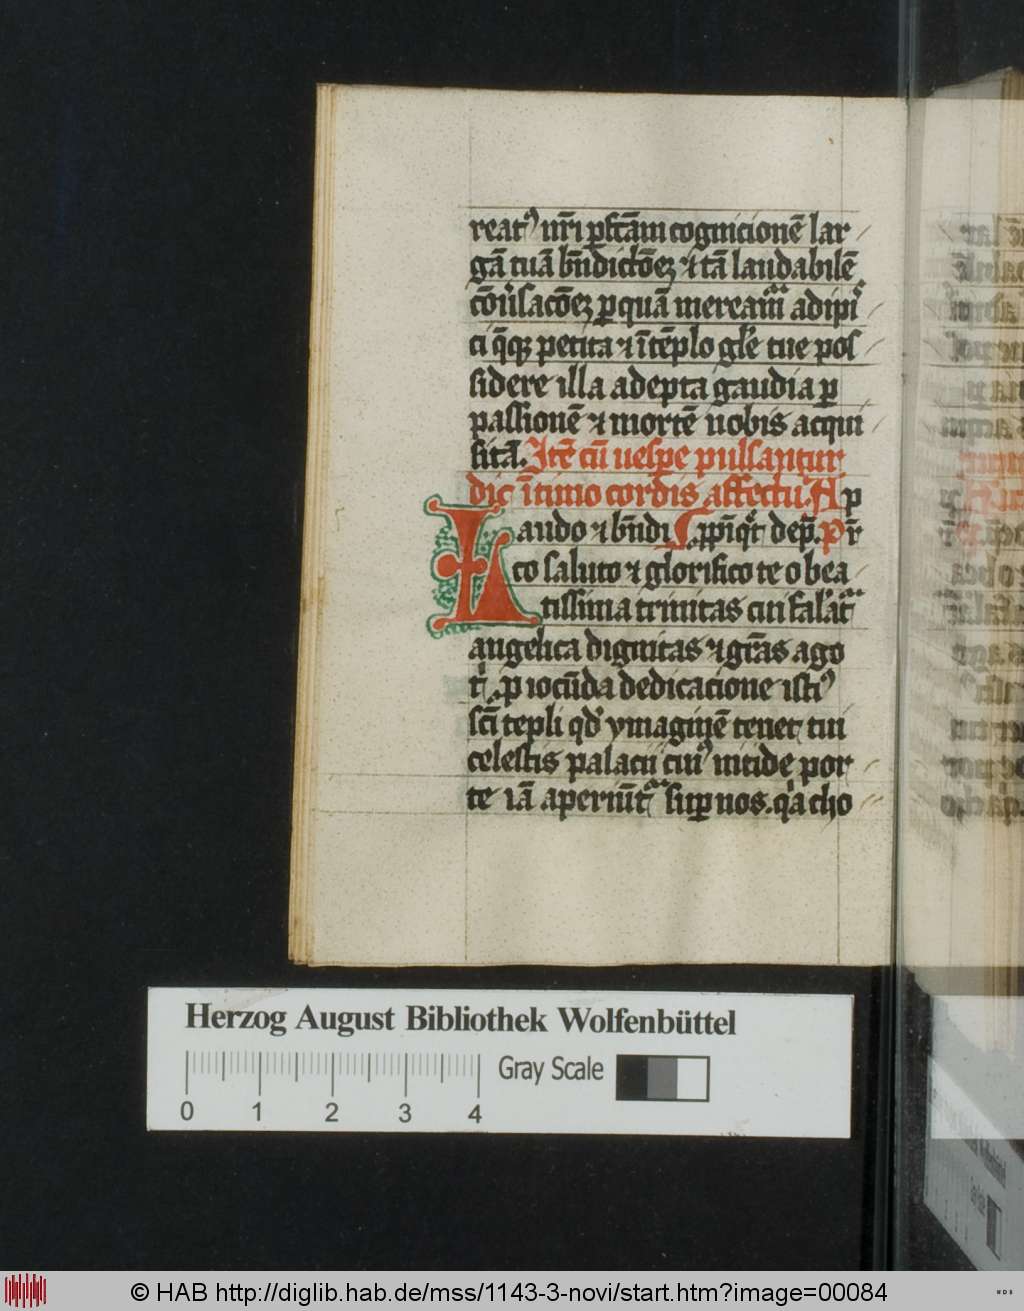 reatꝰ nr̄i p̱fc̄am cognicionē lar
gā tuā bn̄dictōeꝫ ⁊ tā laudabilē
ꝯu̓sacōeꝫ ꝑ quā mereamᷣ adipi
ci q̄qꝫ petita ⁊ ī tēplo gl̓e tue pos
sidere illa adepta gaudia ꝑ
passionē ⁊ mortē nobis acqui
sitā. Itē cū uesꝑe pulsantur
dic̄ ītimo cordis affectu. A p
Laudo ⁊ bn̄di dep̄. Pr̄
co saluto ⁊ glorifico te o bea
tissima trinitas cui fal̓atᷣ
angelica dignitas ⁊ gr̄as ago
t̄ ꝓ iocūda dedicacione istiꝰ
sc̄i tēpli qd̓ ymaginē tenet tui
celestis palacii cuiꝰ nitide por
te iā aperiūtᷣ suꝑ nos. q̓a cho
Herzog August Bibliothek Wolfenbüttel
Gray Scale
0 1 2 3 4
© HAB http://diglib.hab.de/mss/1143-3-novi/start.htm?image=00084